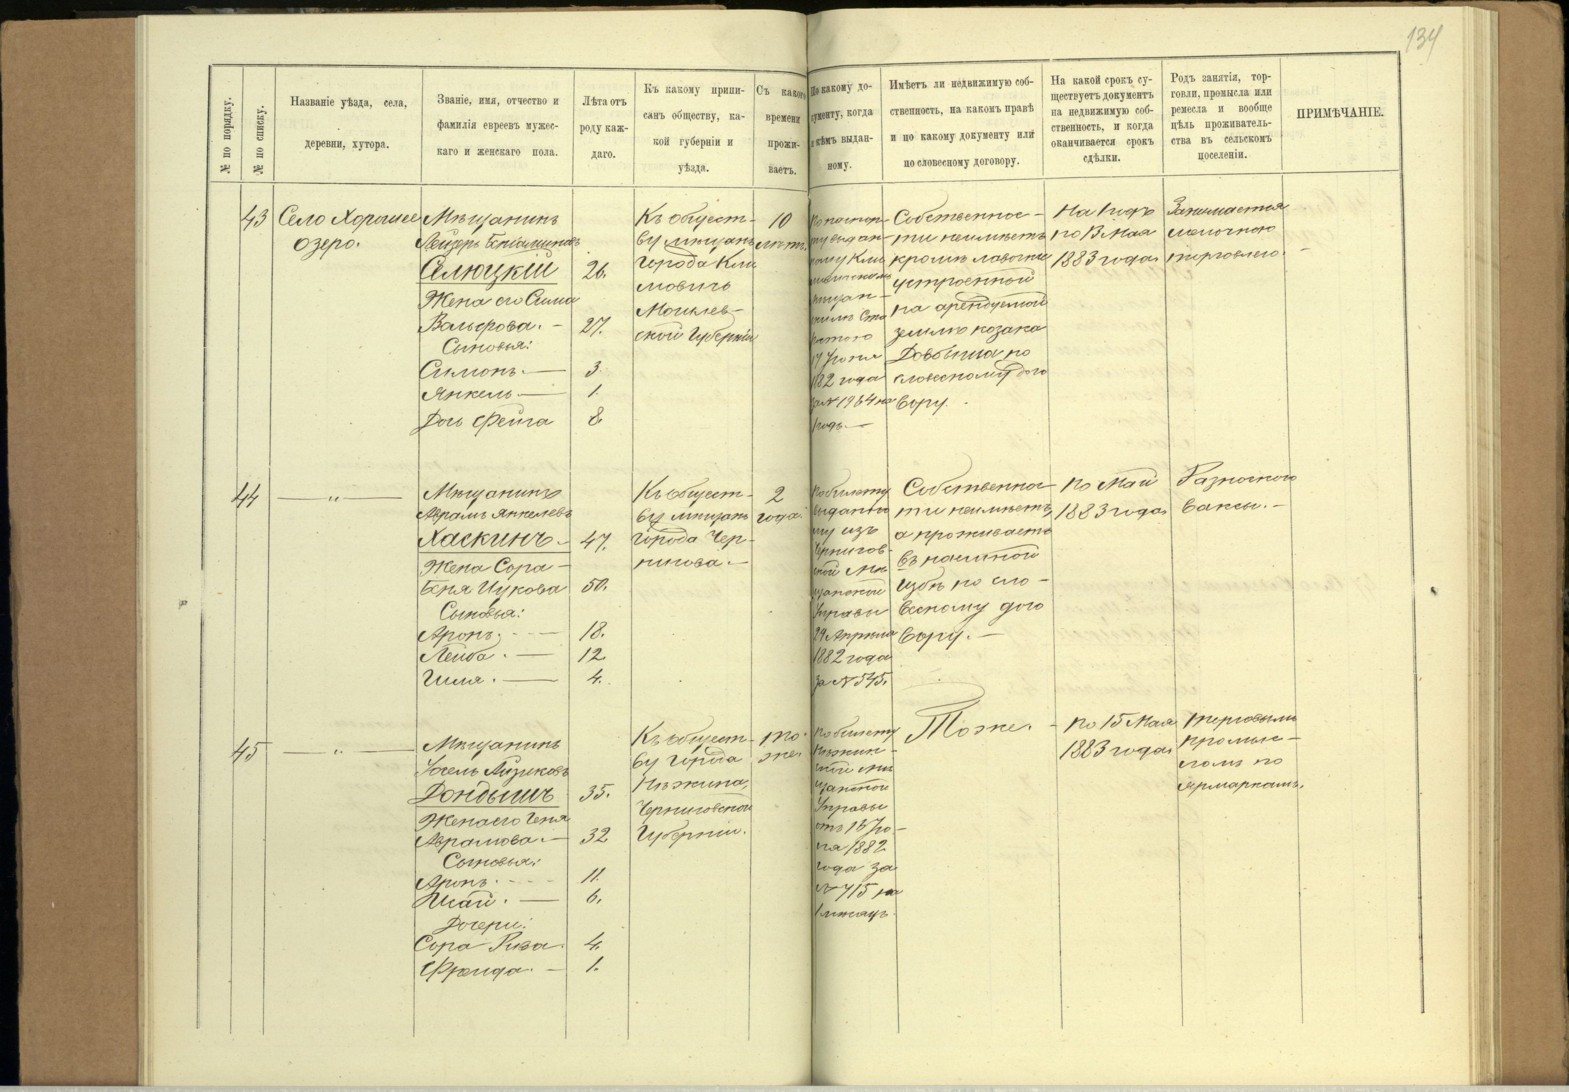 134
№ по порядку.
№ по списку.
Названіе уѣзда, села,
деревни, хутора.
Званіе, имя, отчество и
фамилія евреевъ мужес-
каго и женскаго пола.
Лѣта отъ
роду каж-
даго.
Къ какому припи-
санъ обществу, ка-
кой губерніи и
уѣзда.
Съ какого
времени
прожи-
ваетъ.
По какому до-
кументу, когда
и кѣмъ выдан-
ному.
Имѣетъ ли недвижимую соб-
ственность, на какомъ правѣ
и по какому документу или
по словесному договору.
На какой срокъ су-
ществуетъ документъ
на недвижимую соб-
ственность, и когда
оканчивается срокъ
сдѣлки.
Родъ занятія, тор-
говли, промысла или
ремесла и вообще
цѣль проживатель-
ства въ сельскомъ
поселеніи.
ПРИМѢЧАНІЕ.
43
Село Хорошее
озеро.
Мѣщанинъ
Лейзеръ Беньяминовъ
Селюцкій
Жена его Сима
Вольфова. —
Сыновья:
Симонъ. —
Янкель —
Дочь Фейга
26.
27.
3.
1.
8.
Къ общест-
ву мѣщанъ
города Кли
мовичъ
Могилев-
ской Губерніи
10
лѣтъ.
17 Іюня
1882 года
за № 1964 на
годъ. —
Собственнос-
ти неимѣетъ
кромѣ лавочки
устроенной
на арендуемой
землѣ козака
Довбыша по
словесному дого
вору.
На годъ
по 13 Мая
1883 года
Занимается
мелочною
торговлею.
44
— „ —
Мѣщанинъ
Аврамъ Янкелевъ
Хаскинъ —
Жена Сора —
Беня Ицкова
Сыновья:
Аронъ. —
Лейба. —
Гиля. —
47.
50.
18.
12.
4.
Къ общест-
ву мѣщанъ
города Чер-
нигова. —
2
года
По билету
выданно
му изъ
Чернигов-
ской Мѣ
щанской
Управы
29 Апрѣля
1882 года
за № 545.
Собственнос-
ти неимѣетъ,
а проживаетъ
въ наемной
избѣ по сло-
весному дого
вору. —
По Май
1883 года
Разноскою
ваксы. —
45
— „ —
Мѣщанинъ
Іосель Айзиковъ
Дондышъ
Жена его Геня
Аврамова. —
Сыновья:
Аронъ. —
Шай. —
Дочери:
Сора Рива.
Фрейда. —
35.
32
11.
6.
4.
1.
Къ общест-
ву города
Нѣжина,
Черниговской
Губерніи.
то-
же.
По билету
Нѣжин-
ской Мѣ
щанской
Управы
отъ 15 Ію-
ля 1882
года за
№ 715 на
1 мѣсяцъ.
Тоже. —
По 15 Мая
1883 года
торговымъ
промыс-
ломъ по
ярмаркамъ.